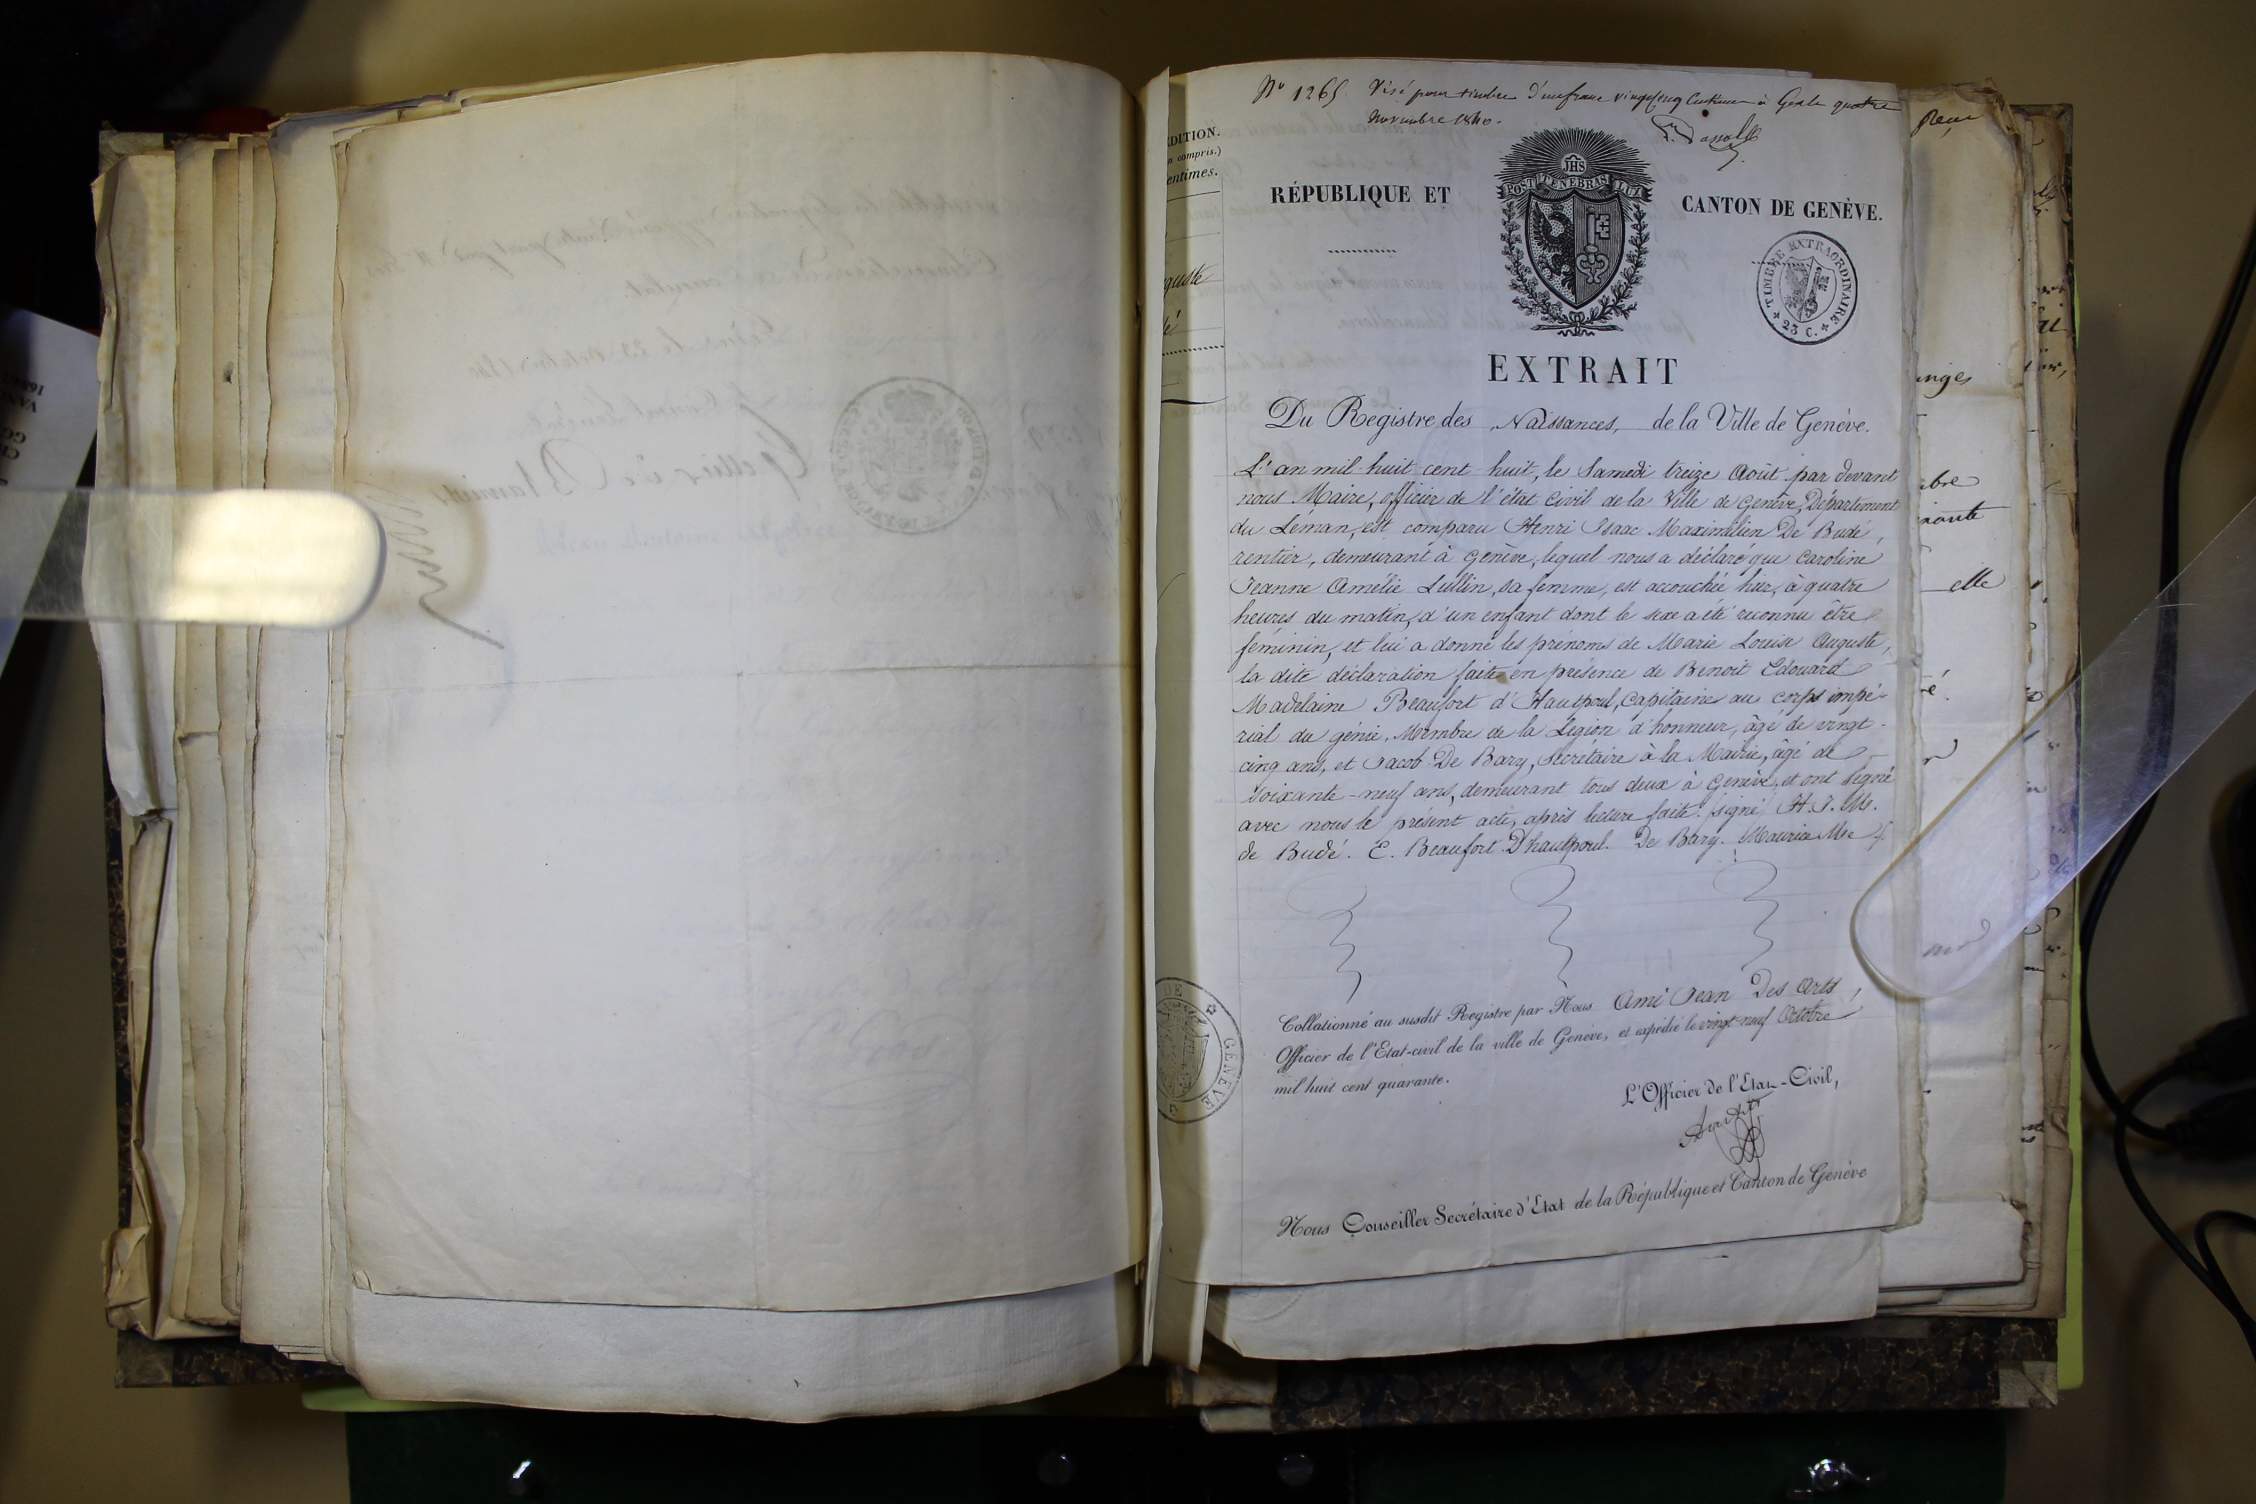 No 1265. Visé pour timbre d'un franc vingt cinq centimes à Gex le quatre
Novembre 1840.
ÉDITION.
compris.)
entimes.
guste
RÉPUBLIQUE ET
CANTON DE GENÈVE.
IHS
POST TENEBRAS LUX
* TIMBRE EXTRAORDINAIRE *
25 C.
EXTRAIT
Du Registre des Naissances, de la Ville de Genève.
L'an mil huit cent huit, le Samedi treize Août par devant
nous Maire, officier de l'état civil de la Ville de Genève, Département
du Léman, est comparu Henri Isaac Maximilien De Budé,
rentier, demeurant à Genève, lequel nous a déclaré que Caroline
Jeanne Amélie Lullin, sa femme, est accouchée hier, à quatre
heures du matin, d'un enfant dont le sexe a été reconnu être
féminin, et lui a donné les prénoms de Marie Louise Auguste,
la dite déclaration faite en présence de Benoit Edouard
Madelaine Beaufort d'Hautpoul, Capitaine au corps impé-
rial du génie, Membre de la Légion d'honneur, âgé de vingt-
cinq ans, et Jacob De Bary, Secrétaire à la Mairie, âgé de
soixante-neuf ans, demeurant tous deux à Genève, et ont signé
avec nous le présent acte, après lecture faite. signé H. I. M.
de Budé. E. Beaufort D'hautpoul. De Bary. Maurice Me
Collationné au susdit Registre par Nous Ami Jean Des Arts,
Officier de l'Etat-civil de la ville de Genève, et expédié le vingt-neuf Octobre
mil huit cent quarante.
L'Officier de l'Etat-Civil,
DE
GENÈVE
Nous Conseiller Secrétaire d'Etat de la République et Canton de Genève
elle